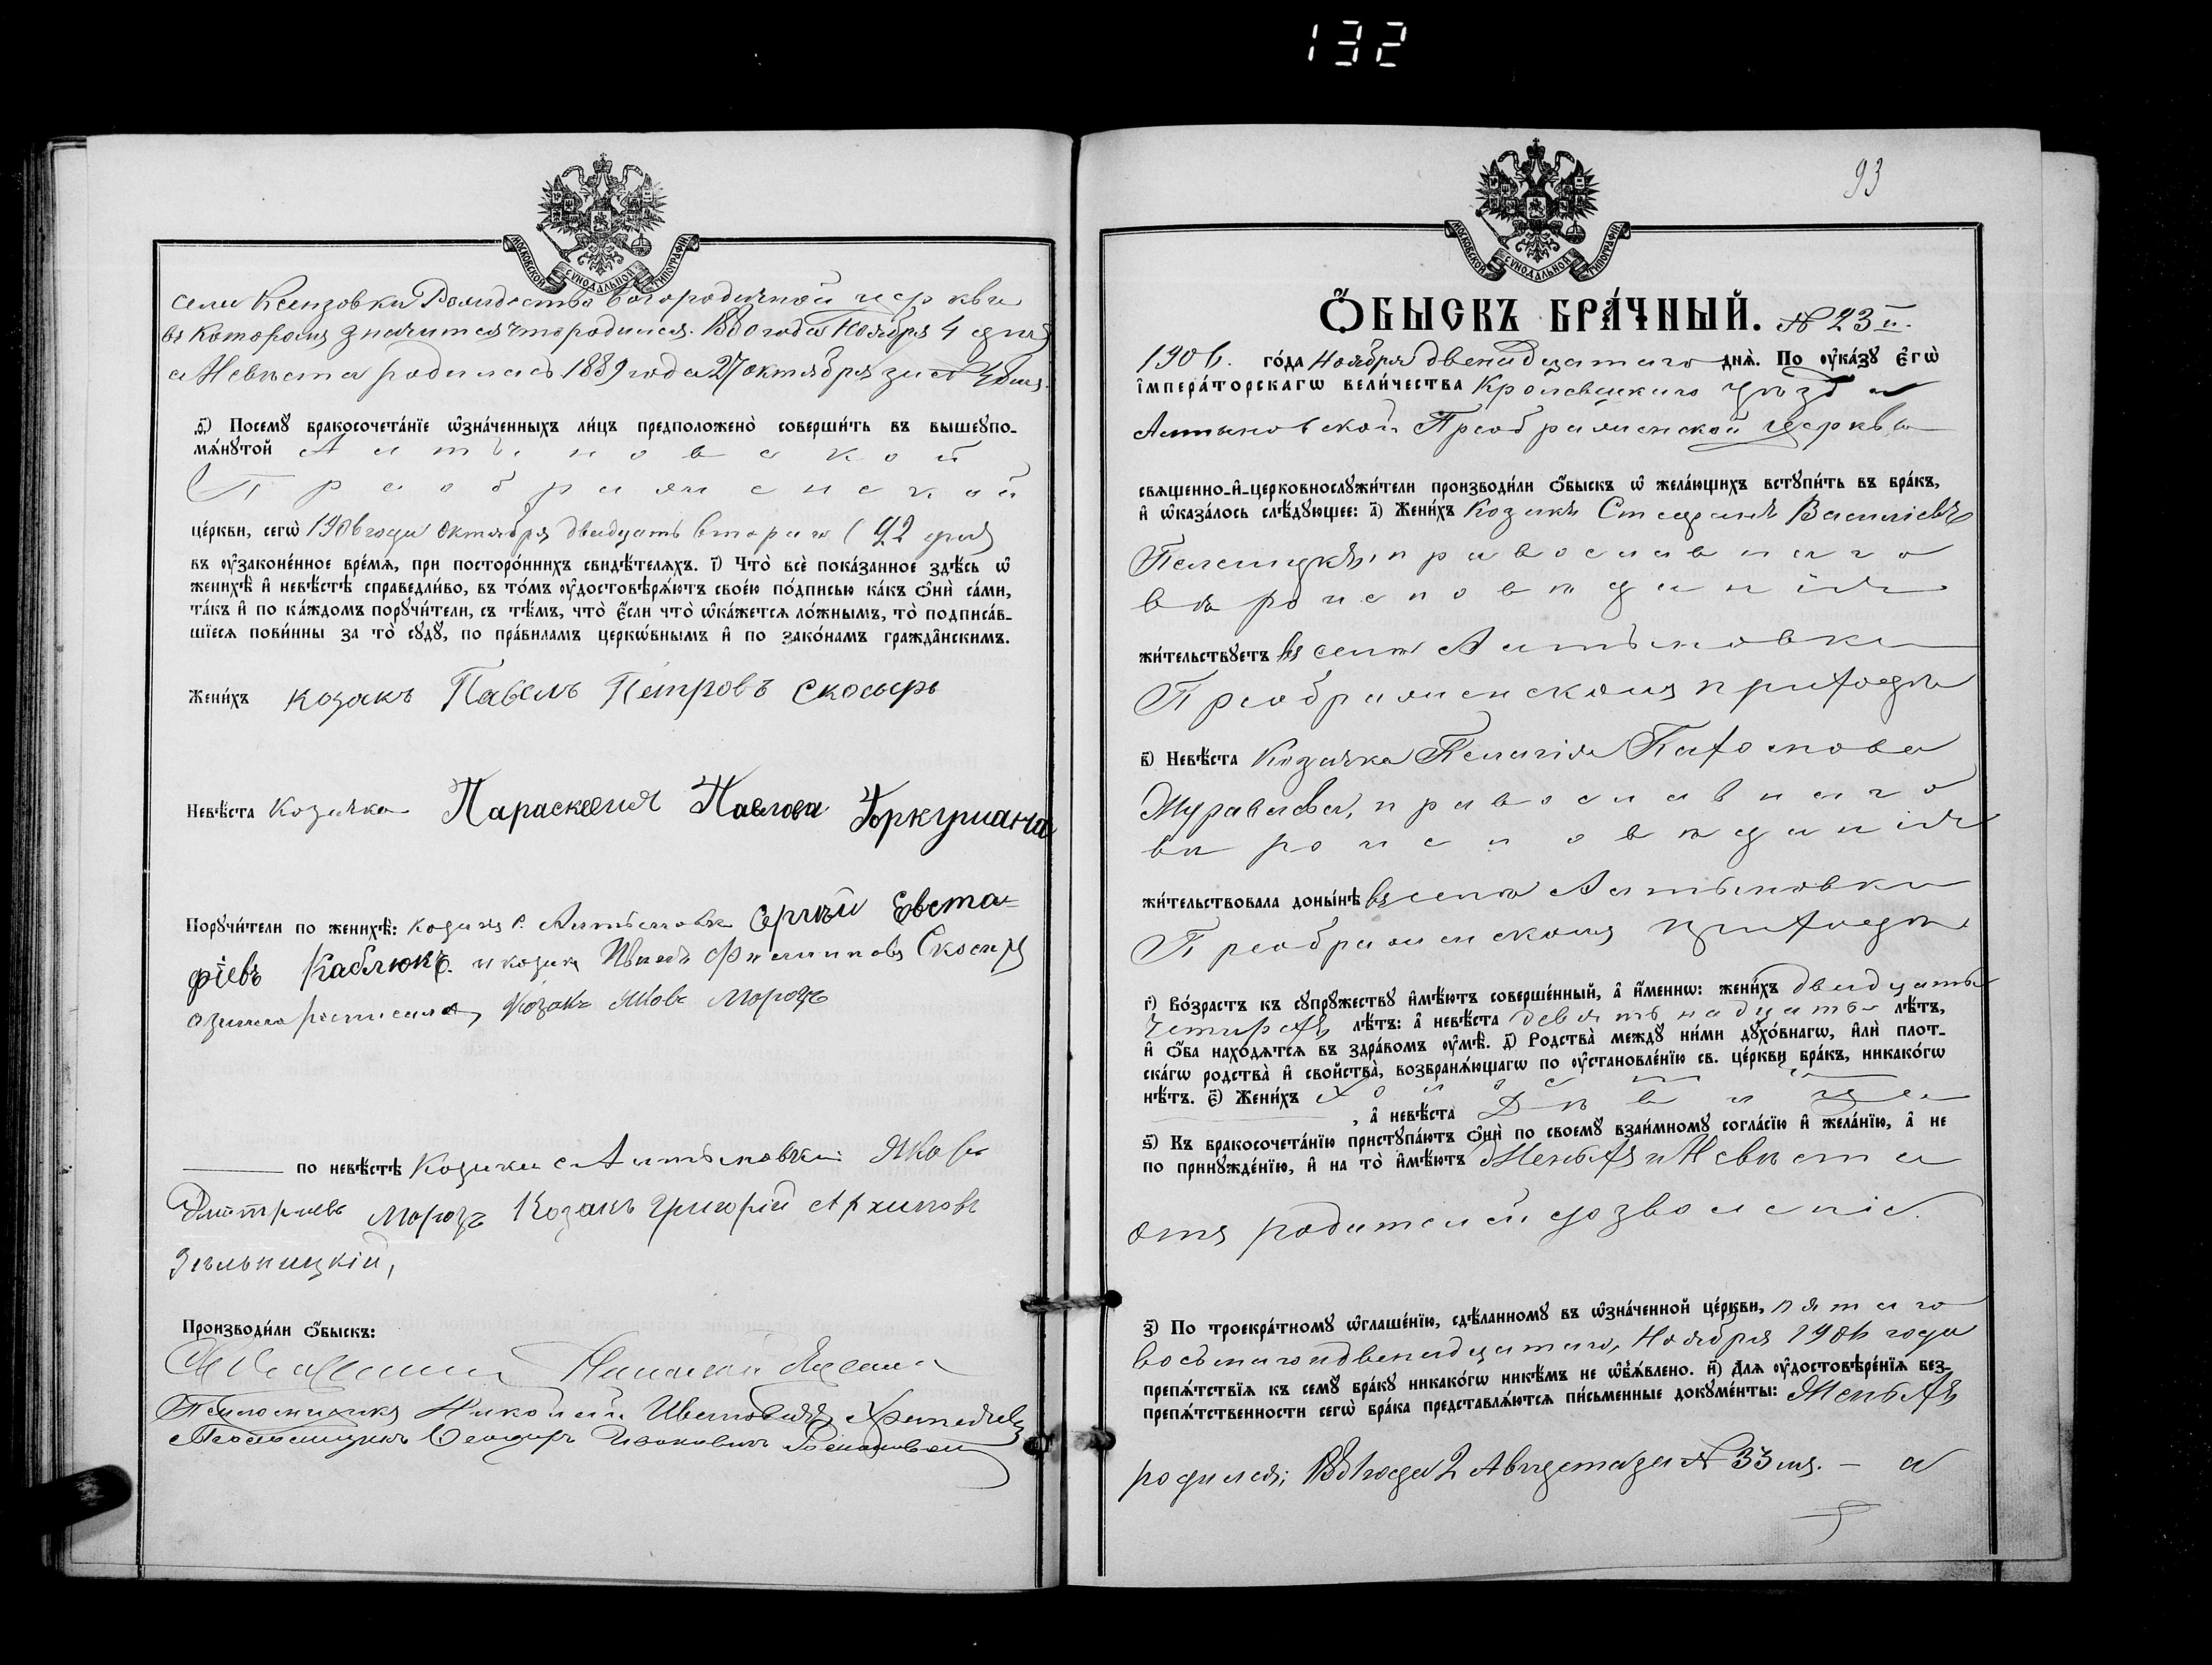 132
МОСКОВСКОЙ СѴНОДАЛЬНОЙ ТИПОГРАФІИ
села Ксензовки Рождество Богородичной церкви
въ которомъ значится что родился 1880 года Ноября 4 дня
а Невѣста родилась 1889 года 27 октября за №
ѳ) Посемꙋ бракосочета́нїе ѡ҆зна́ченныхъ ли́цъ предположено̀ соверши́ть въ вышеꙋпо-
мѧ́нꙋтой Алтыновской
Преображенской
це́ркви, сегѡ̀ 1906 года октября двадцать втораго (22 дня)
въ ᲂу҆законе́нное вре́мѧ, при посторо́ннихъ свидѣ́телѧхъ. і҃) Что̀ всѐ пока́занное здѣ́сь ѡ҆
женихѣ̀ и҆ невѣ́стѣ справедли́во, въ то́мъ ᲂу҆достовѣрѧ́ютъ свое́ю по́дписью ка́къ ѻ҆нѝ са́ми,
та́къ и҆ по ка́ждомъ порꙋчи́тели, съ тѣ́мъ, что̀ є҆́сли что̀ ѡ҆ка́жется ло́жнымъ, то̀ подписа́в-
шїеся пови́нны за то̀ сꙋдꙋ̀, по пра́виламъ церко́внымъ и҆ по зако́намъ гражда̑нскимъ.
Жени́хъ козакъ Павелъ Петровъ Скосырь
Невѣ́ста Козачка Параскевия Павлова
Порꙋчи́тели по женихѣ̀: козакъ с. Алтыновки Сергѣй Евста-
фіевъ Каблюкъ. и козакъ Филиповъ Скосырь
козакъ Яковъ Морозъ
по невѣ́стѣ Козаки с Алтыновки: Яковъ
Дмитріевъ Морозъ Козакъ Григорій Архиповъ
Зѣльницкій,
Производи́ли ѻ҆́быскъ:
Николай
Псаломщикъ Николай Ивановичъ
Псаломщикъ
93
МОСКОВСКОЙ СѴНОДАЛЬНОЙ ТИПОГРАФІИ
Ѻ҆́БЫСКЪ БРА́ЧНЫЙ. № 23 й.
1906. го́да Ноября двенадцатаго днѧ̀. По ᲂу҆ка́зꙋ є҆гѡ̀
і҆мпера́торскагѡ вели́чества Кролевецкаго уѣзда
Алтыновской Преображенской церкви
свѧще́нно-и҆-церковнослꙋжи́тели производи́ли ѻ҆́быскъ ѡ҆ жела́ющихъ встꙋпи́ть въ бра́къ,
и҆ ѡ҆каза́лось слѣ́дꙋющее: а҃) Жени́хъ Козакъ Стефанъ Василіевъ
православнаго
вѣроисповѣданія
жи́тельствꙋетъ въ селѣ Алтыновки
Преображенскомъ приходѣ
в҃) Невѣ́ста Козачка Пелагія Пахомова
Журавлева, православнаго
вѣроисповѣданія
жи́тельствовала доны́нѣ въ селѣ Алтыновки
Преображенскомъ приходѣ
г҃) Во́зрастъ къ сꙋпрꙋ́жествꙋ и҆мѣ́ютъ соверше́нный, а҆ и҆́меннѡ: жени́хъ двадцать
четырехъ лѣ́тъ: а҆ невѣ́ста девятнадцать лѣ́тъ,
и҆ ѻ҆́ба нахо́дѧтсѧ въ здра́вомъ ᲂу҆мѣ̀. д҃) Родства̀ междꙋ̀ ни́ми дꙋхо́внагѡ, и҆лѝ плот-
ска́гѡ родства̀ и҆ свойства̀, возбранѧ́ющагѡ по ᲂу҆становле́нїю св. це́ркви бра́къ, никако́гѡ
нѣ́тъ. є҃) Жени́хъ Холостъ
, а҆ невѣ́ста Дѣвица
ѕ҃) Къ бракосочета́нїю пристꙋпа́ютъ ѻ҆нѝ по своемꙋ̀ взаи́мномꙋ согла́сїю и҆ жела́нїю, а҆ не
по принꙋжде́нїю, и҆ на то̀ и҆мѣ́ютъ Женихъ и Невѣста
отъ родителей дозволеніе.
з҃) По троекра́тномꙋ ѡ҆глаше́нїю, сдѣ́ланномꙋ въ ѡ҆зна́ченной це́ркви, пятаго
восьмаго и двенадцатаго, Ноября 1906 года
препѧ́тствїѧ къ семꙋ̀ бра́кꙋ никако́гѡ никѣ́мъ не ѡ҆б̾ѧ́влено. и҃) Длѧ ᲂу҆достовѣре́нїѧ без-
препѧ́тственности сегѡ̀ бра́ка представлѧ́ютсѧ пи́сьменные докꙋме́нты: Женихъ
родился; 1881 года 2 Августа за № 33 мъ. — а